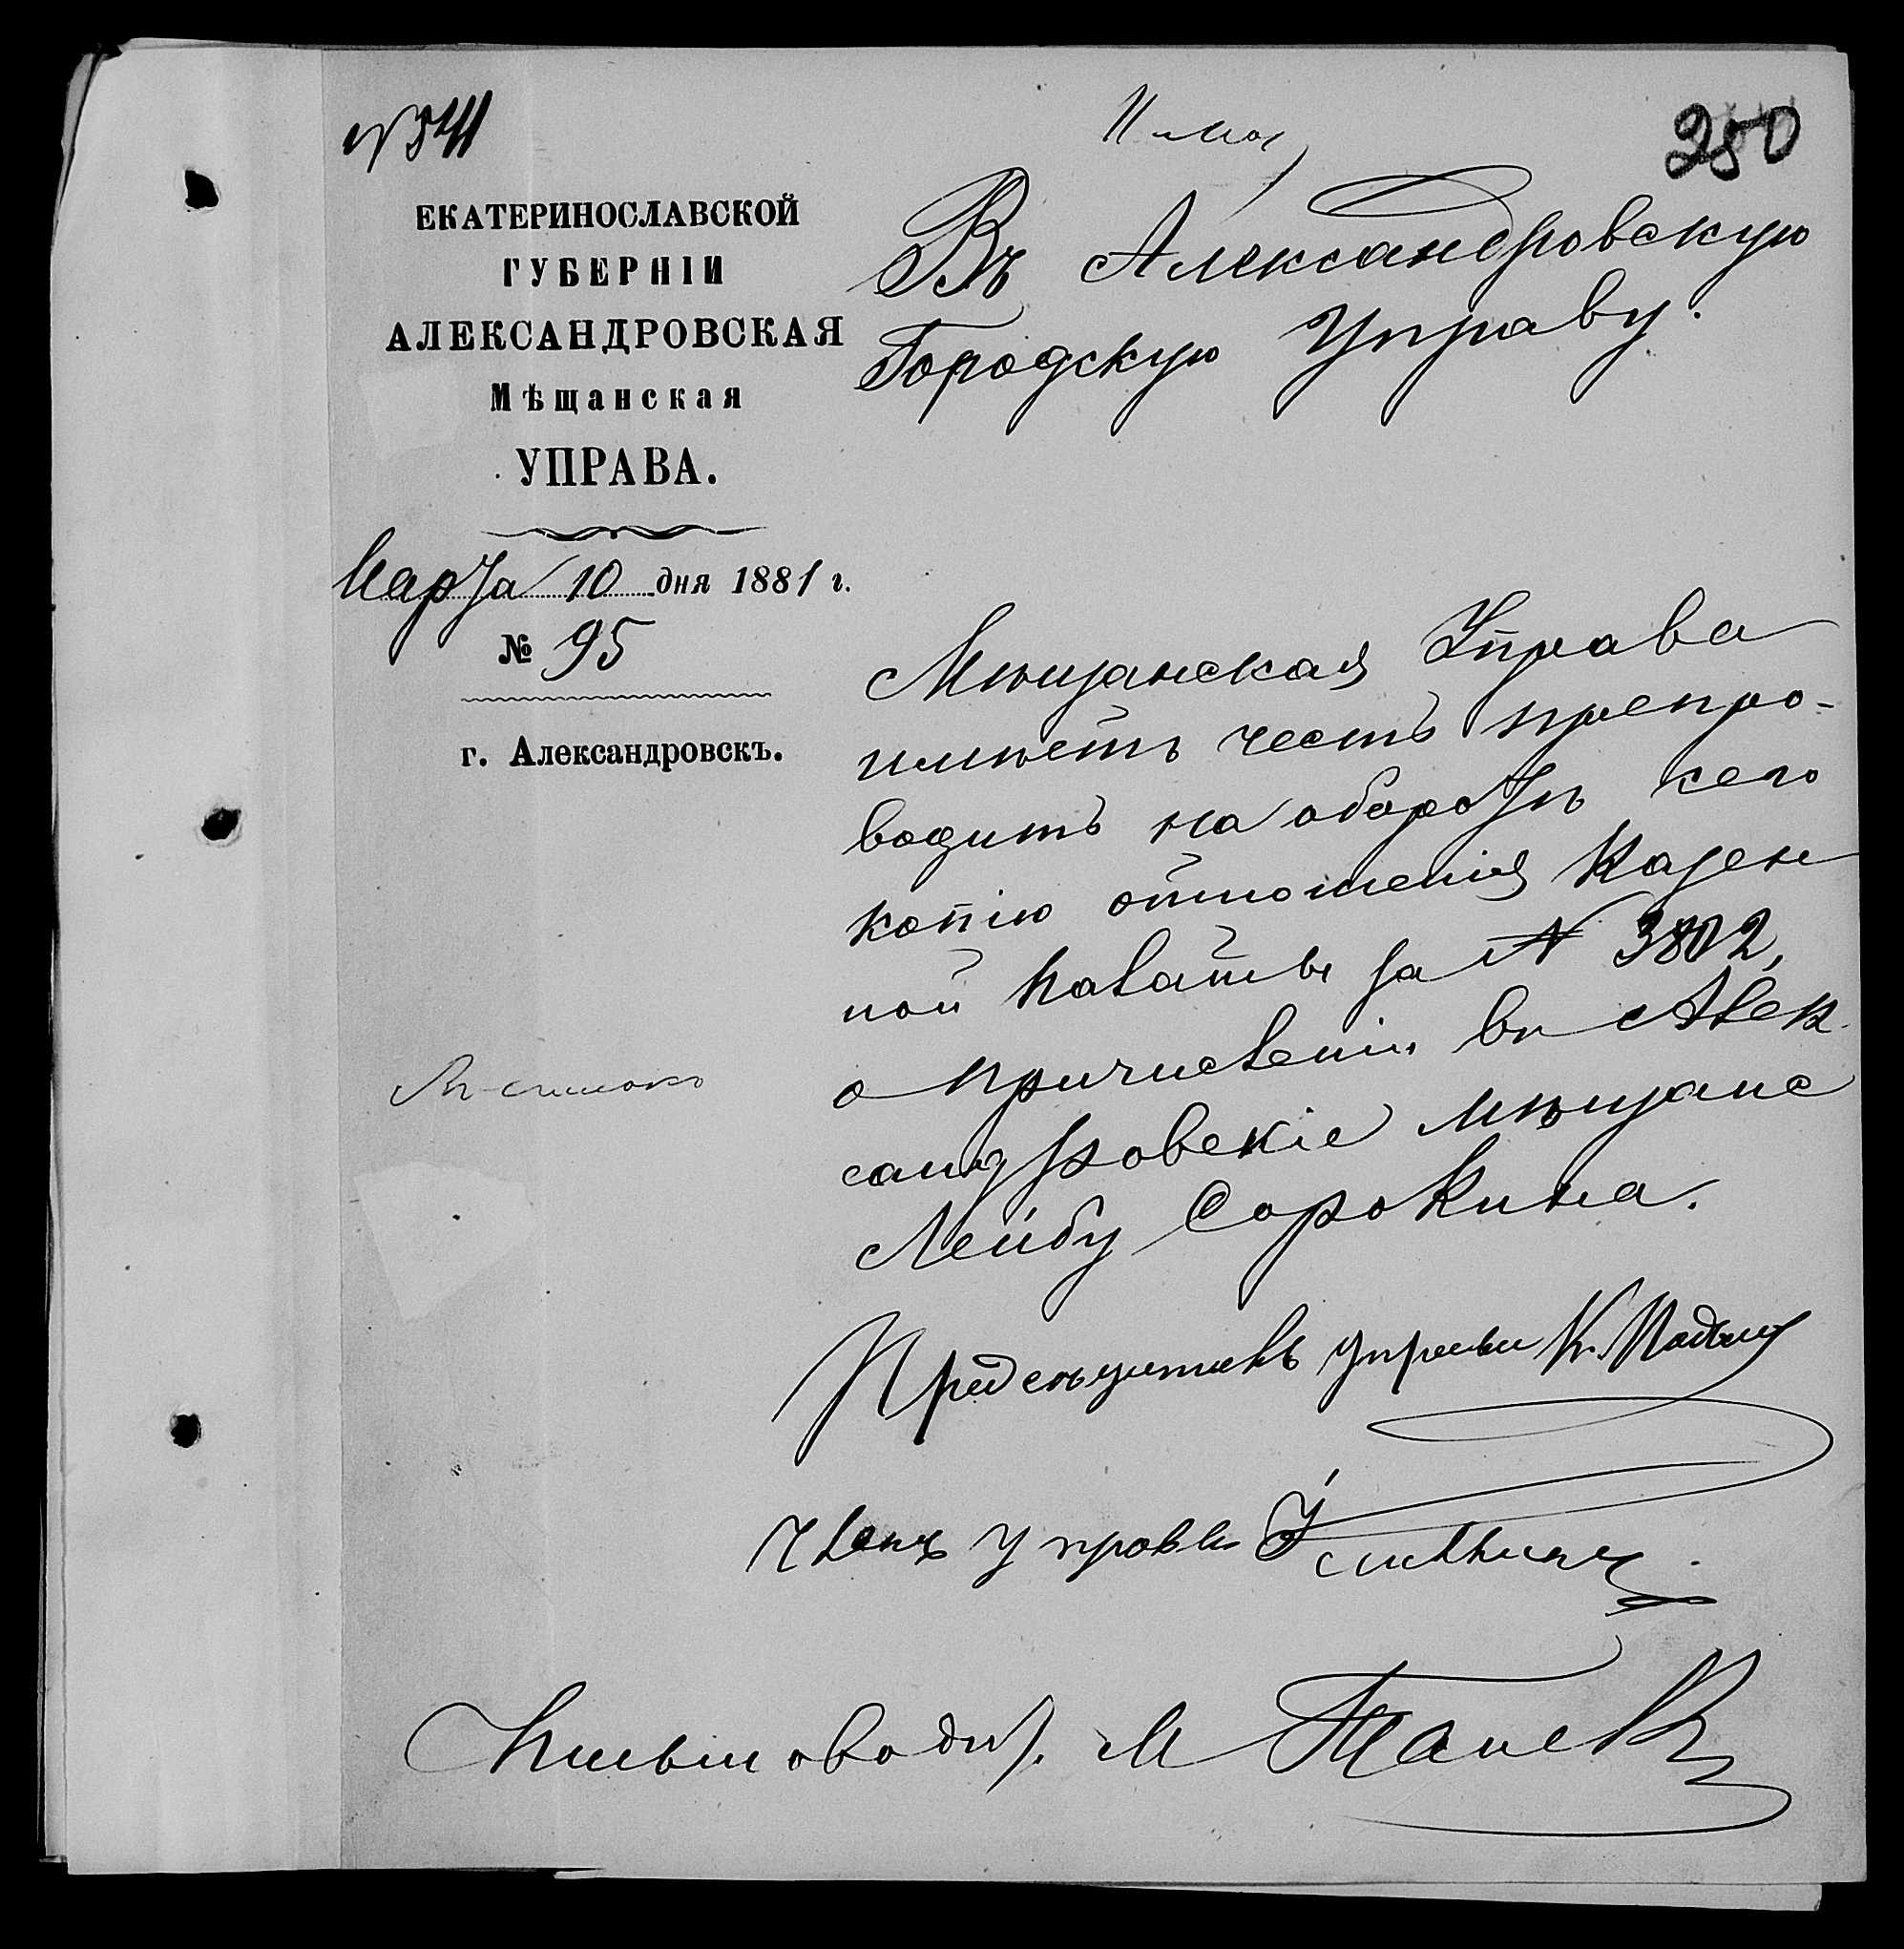 № 541
250
ЕКАТЕРИНОСЛАВСКОЙ
ГУБЕРНІИ
АЛЕКСАНДРОВСКАЯ
Мѣщанская
УПРАВА.
Марта 10 дня 1881 г.
№ 95
г. Александровскъ.
Въ Александровскую
Городскую Управу.
Мѣщанская Управа
имѣетъ честь препро-
водить на оборотѣ сего
копію отношенія Казен
ной Палаты за № 3802,
о причисленіи въ Алек
сандровскіе мѣщане
Лейбу Сорокина.
Предсѣдатель управы К.
Членъ управы
Письмоводит. М